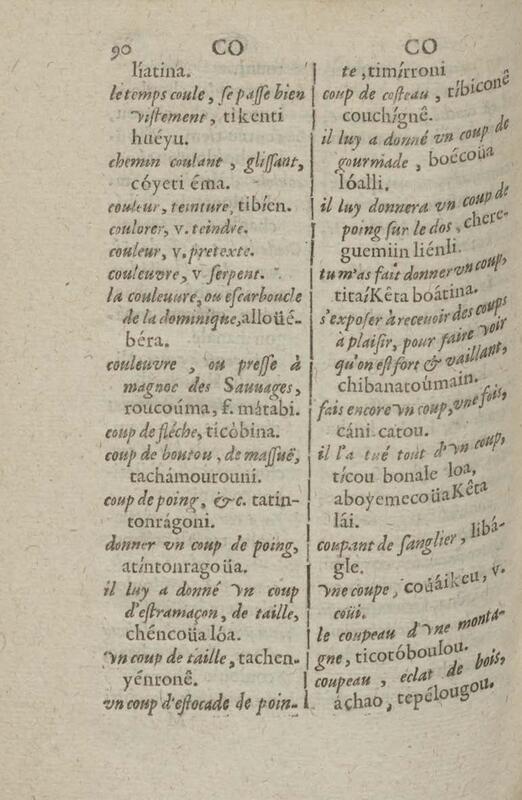 90 CO
líatina.
le temps coule, se passe bien
vistement, tikenti
huéyu.
chemin coulant, glissant,
cóyeti éma.
couleur, teinture, tibíen.
coulorer, v. teindre.
couleur, v. pretexte.
couleuvre, v serpent.
la couleuure, ou escarboucle
de la dominique, alloüé-
béra.
couleuvre, ou presse à
magnoc des Sauuages,
roucoúma, f. mátabi.
coup de fléche, ticóbina.
coup de boutou, de massuë,
tachámourouni.
coup de poing, &c. tatin-
tonrágoni.
donner vn coup de poing,
atíntonrago üa.
il luy a donné vn coup
d'estramaçon, de taille,
chéncoüa lóa.
vn coup de taille, tachen-
yénronê.
vn coup d'estocade de poin-
CO
te, timírroni
coup de costeau, tíbiconê
couchígnê.
il luy a donné vn coup de
gourmade, boécoüa
lóalli.
il luy donnera vn coup de
poing sur le dos, chere-
guemiin liénli.
tu m'as fait donner vn coup,
titaíKêta boâtina.
s'exposer à receuoir des coups
à plaisir, pour faire voir
qu'on est fort & vaillant,
chibanatoúmain.
fais encore vn coup, vne fois,
cáni catou.
il l'a tué tout d'vn coup,
tícou bonale loa,
aboyemecoüaKêta
lái.
coupant de sanglier, libá-
gle.
vne coupe, coüáikeu, v.
coüi.
le coupeau d'vne monta-
gne, ticotóboulou.
coupeau, éclat de bois,
áchao, tepélougou.